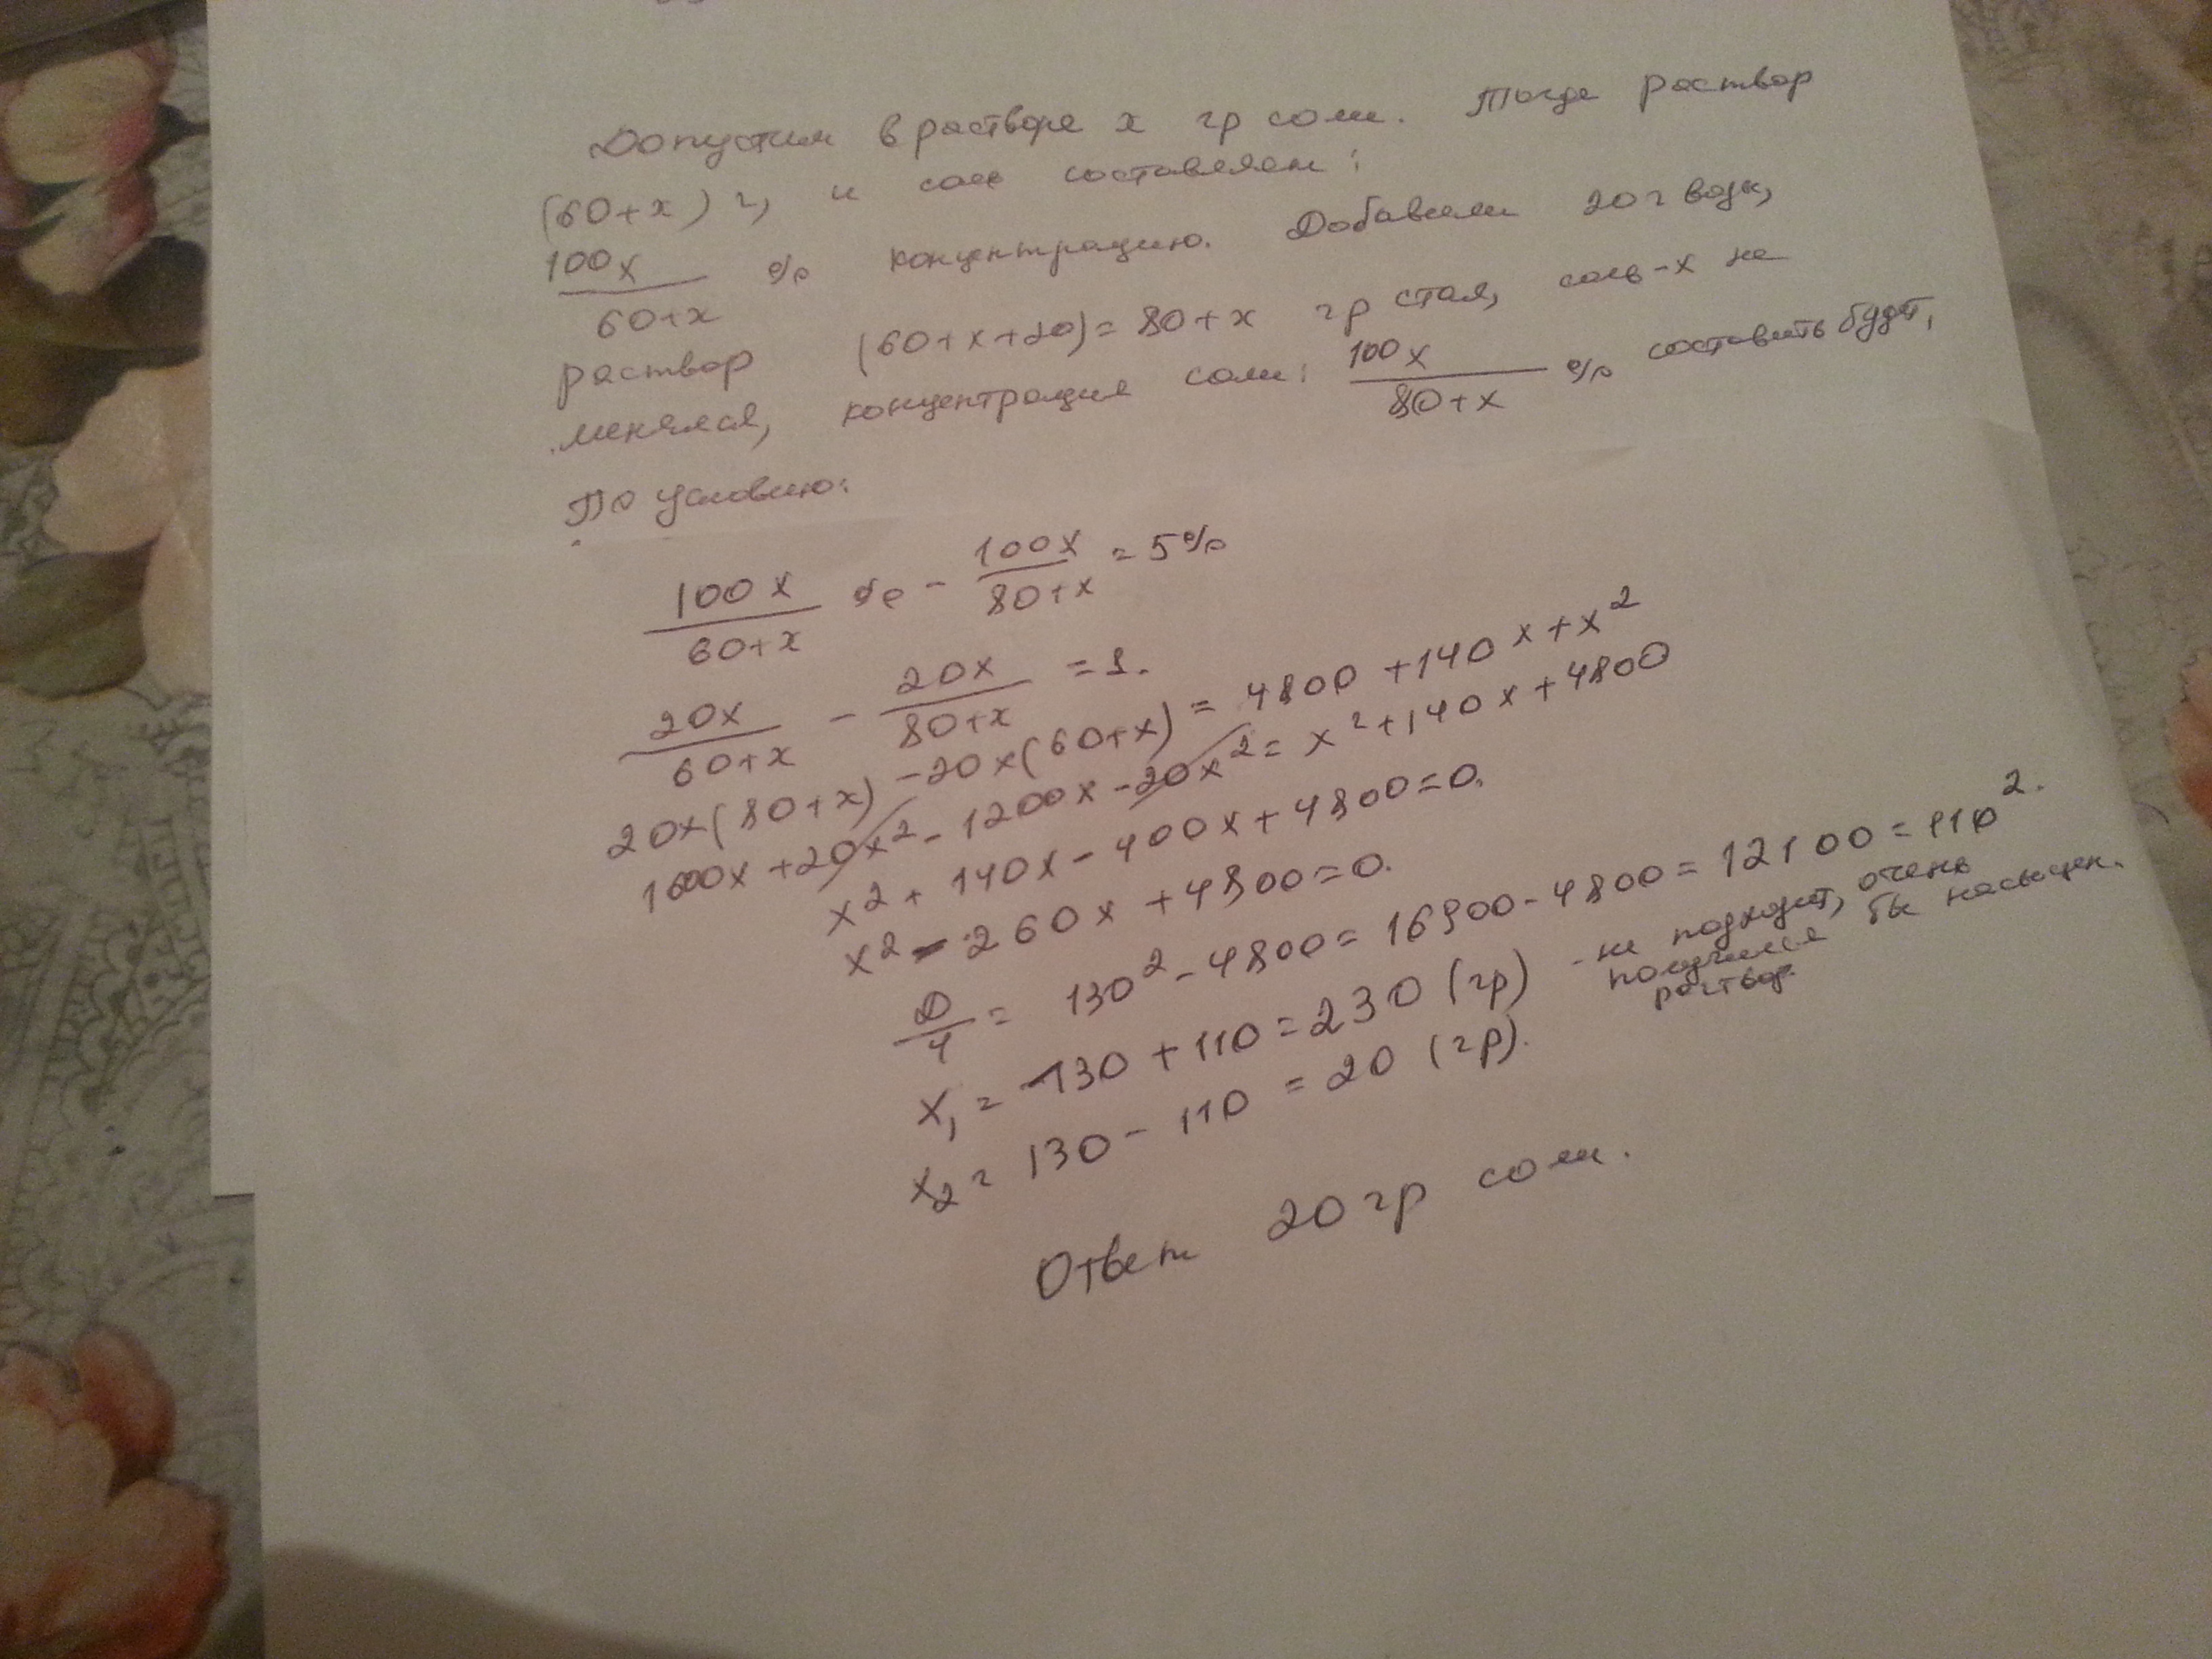 Допустим в растворе x гр соли. Тогда раствор
(60+x) г, и соль составляет:
100x/60+x % концентрацию. Добавили 20 г воды,
раствор (60+x+20)=80+x гр стал, соль-x не
менялся, концентрация соли: 100x/80+x % составить будет,
По условию:
100x/60+x % - 100x/80+x = 5%
20x/60+x - 20x/80+x = 1.
20x(80+x) -20x(60+x) = 4800 +140x+x²
1600x +20x² - 1200x -20x² = x²+140x+4800
x² + 140x - 400x + 4800=0.
x² - 260x + 4800=0.
D/4 = 130² - 4800 = 16900 - 4800 = 12100 = 110².
x₁ = 130 + 110 = 230 (гр) - не подходит, очень
получился бы насыщен.
раствор.
x₂ = 130 - 110 = 20 (гр).
Ответ 20 гр соли.